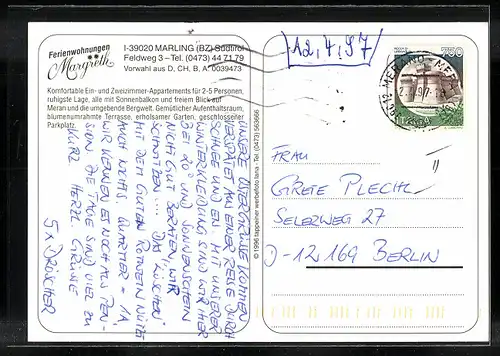 Ferienwohnungen
Margreth
I-39020 MARLING (BZ) Südtirol
Feldweg 3 – Tel. (0473) 44 71 79
Vorwahl aus D, CH, B, A: 0039473
Komfortable Ein- und Zweizimmer-Appartements für 2-5 Personen,
ruhigste Lage, alle mit Sonnenbalkon und freiem Blick auf
Meran und die umgebende Bergwelt. Gemütlicher Aufenthaltsraum,
blumenumrahmte Terrasse, erholsamer Garten, geschlossener
Parkplatz.
UNSERE OSTERGRÜSSE KOMMEN
VERSPÄTET AN. EINER REISE DURCH
SCHNEE UND EIS MIT UNSERER
WINTERKLEIDUNG SIND WIR HIER
BEI 20° UND SONNENSCHEIN
NICHT GUT BERATEN, WIR
SCHWITZEN ... DAS "LÖSCHEN"
MIT DEM GUTEN ROTWEIN NÜTZT
AUCH NICHTS. QUARTIER = 1A,
WIR KENNEN ES NOCH ALS PEN-
SION. DIE TAGE SIND VIEL ZU
KURZ. HERZL. GRÜSSE
5 x DRÖSCHER
© 1996 tappeiner werbefoto lana - Tel. (0473) 563666
[A2,4,97]
750
39012 MERANO - MERAN
FRAU
GRETE PLECHL
SELERWEG 27
D-12 169 BERLIN